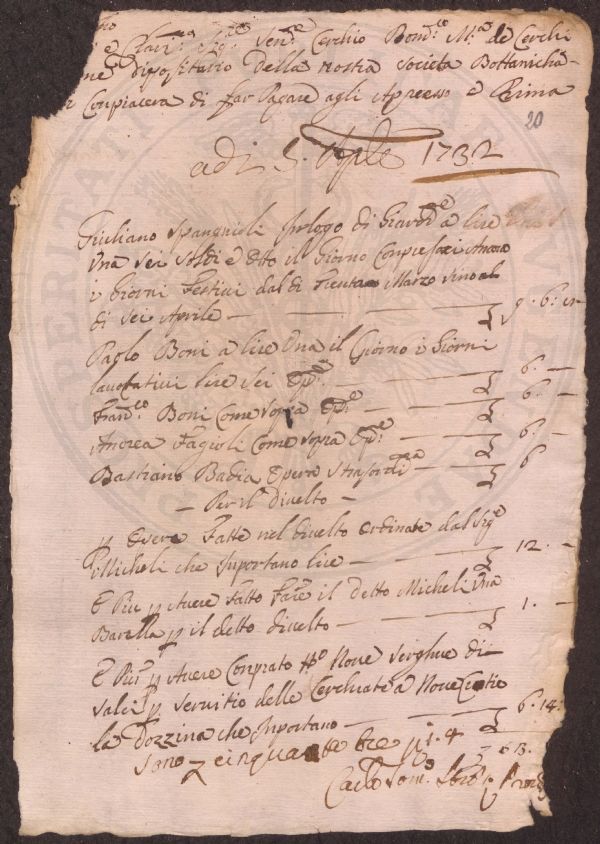 Clari: Sig:re Sen:re Cerchio Bond:co M:a de Cerchi
me Dipositario Della nostra Societa Bottanicha
Conpiacera di far Pagare agli Apresso e Prima
20
adi 5. Aple 1732
Giuliano Spangnioli p luogo di Giard:re a lire
Una sei soldi e otto il Giorno Conpresoci Ancora
i Giorni Festivi dal di Trenta Marzo sino al
di sei Aprile — 9. 6:
Paolo Boni a lire Una il Giorno i Giorni
lavorativi lire sei Op:re — 6. —
Fran:co Boni Come sopra Op:re — 6. —
Andrea Fagioli Come sopra Op:re — 6. —
Bastiano Badia Opera Straordi:ra — 6
— Per il Divelto —
p Overe Fatte nel divelto Ordinate dal Sig:re
Micheli che Inportano lire — 12. —
E Piu p Avere Fatto Fare il detto Micheli Una
Barella p il detto divelto — 1. —
E Piu p Avere Conprato No Nove Verghie di
Salci p Servitio delle Cerchiate a Nove
la Dozzina che Inportano — 6. 14:
Sono cinquanta tre p 1. 4
13.
Carlo